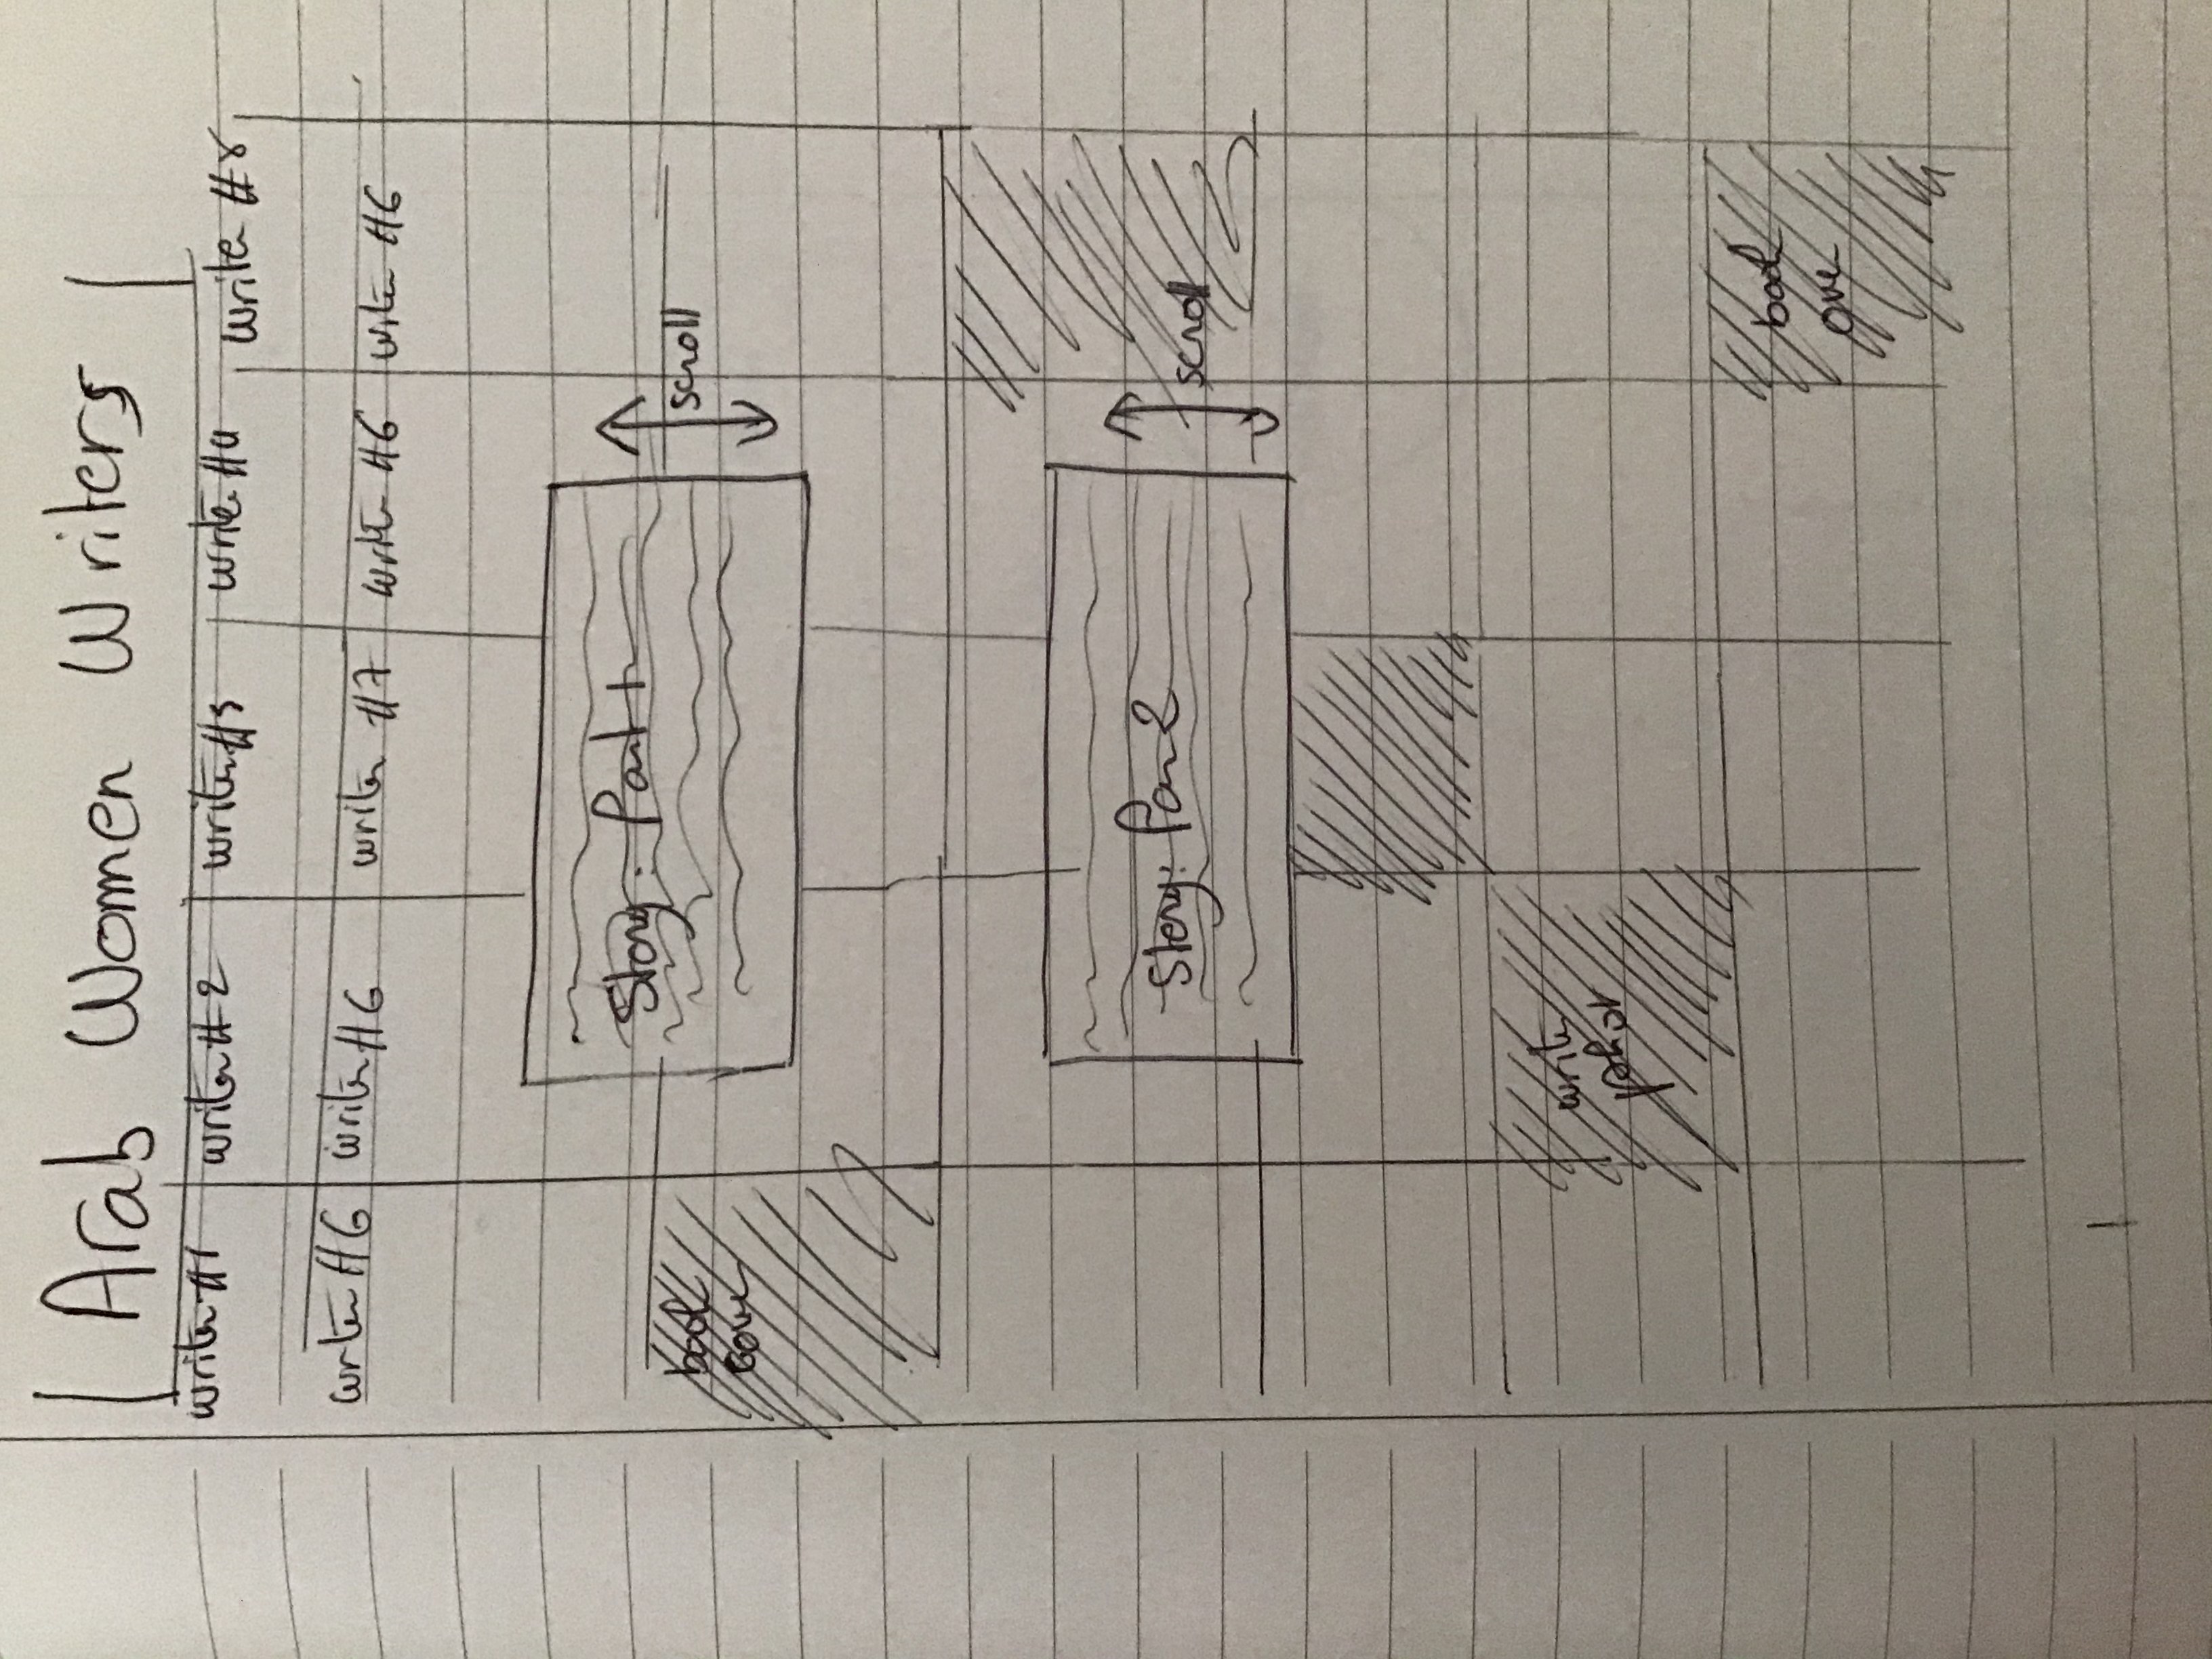 Arab Women Writers
writer #1 writer #2 writer #3 writer #4 writer #8
writer #6 writer #6 writer #7 writer #6 writer #6
Story: Part 1
scroll
book
cover
Story: Par 2
scroll
write
phot
book
over